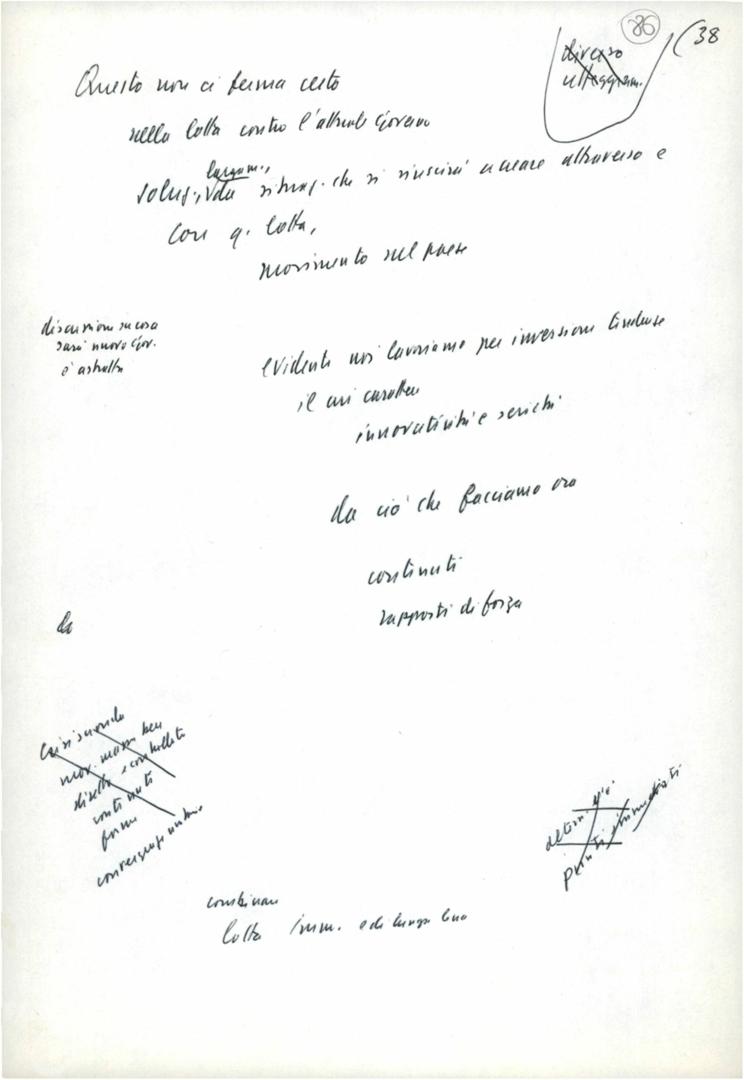 86
(38
diverso
atteggiam.
Questo non ci ferma certo
nella lotta contro l'attuale Governo
largam.,
soluz., situaz. che si riuscirà a creare attraverso e
con q. lotta,
movimento nel paese
discussione su cosa
sarà nuovo Gov.
è astratta
evidente noi lavoriamo per inversione tendenze
il cui carattere
innovativi e
da ciò che facciamo ora
contenuti
rapporti di forza
da
mov. massa ben
diretto e controllato
contenuti
forme
convergenze
punti immediati
combinare
lotta imm. e di lunga lena